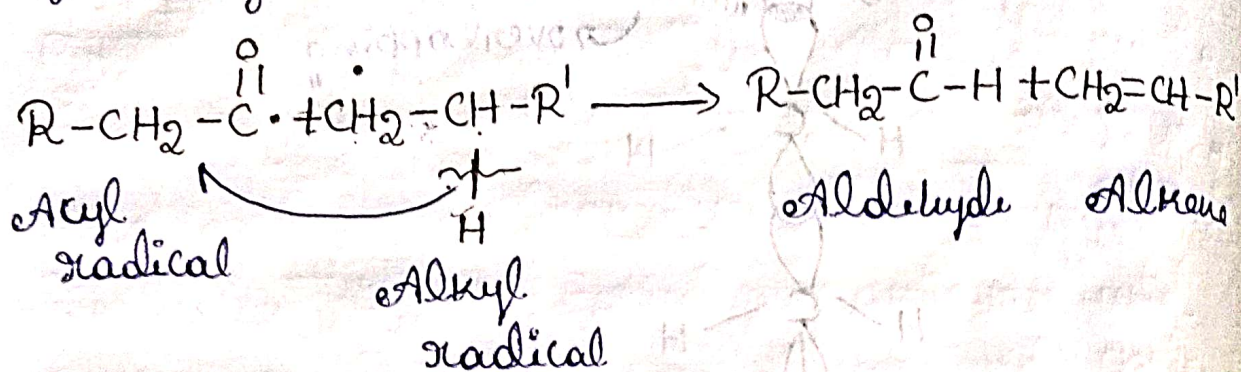 O O
R-CH₂-C· + ĊH₂-CH-R' ⟶ R-CH₂-C-H + CH₂=CH-R'
H
Acyl radical Alkyl radical Aldehyde Alkene